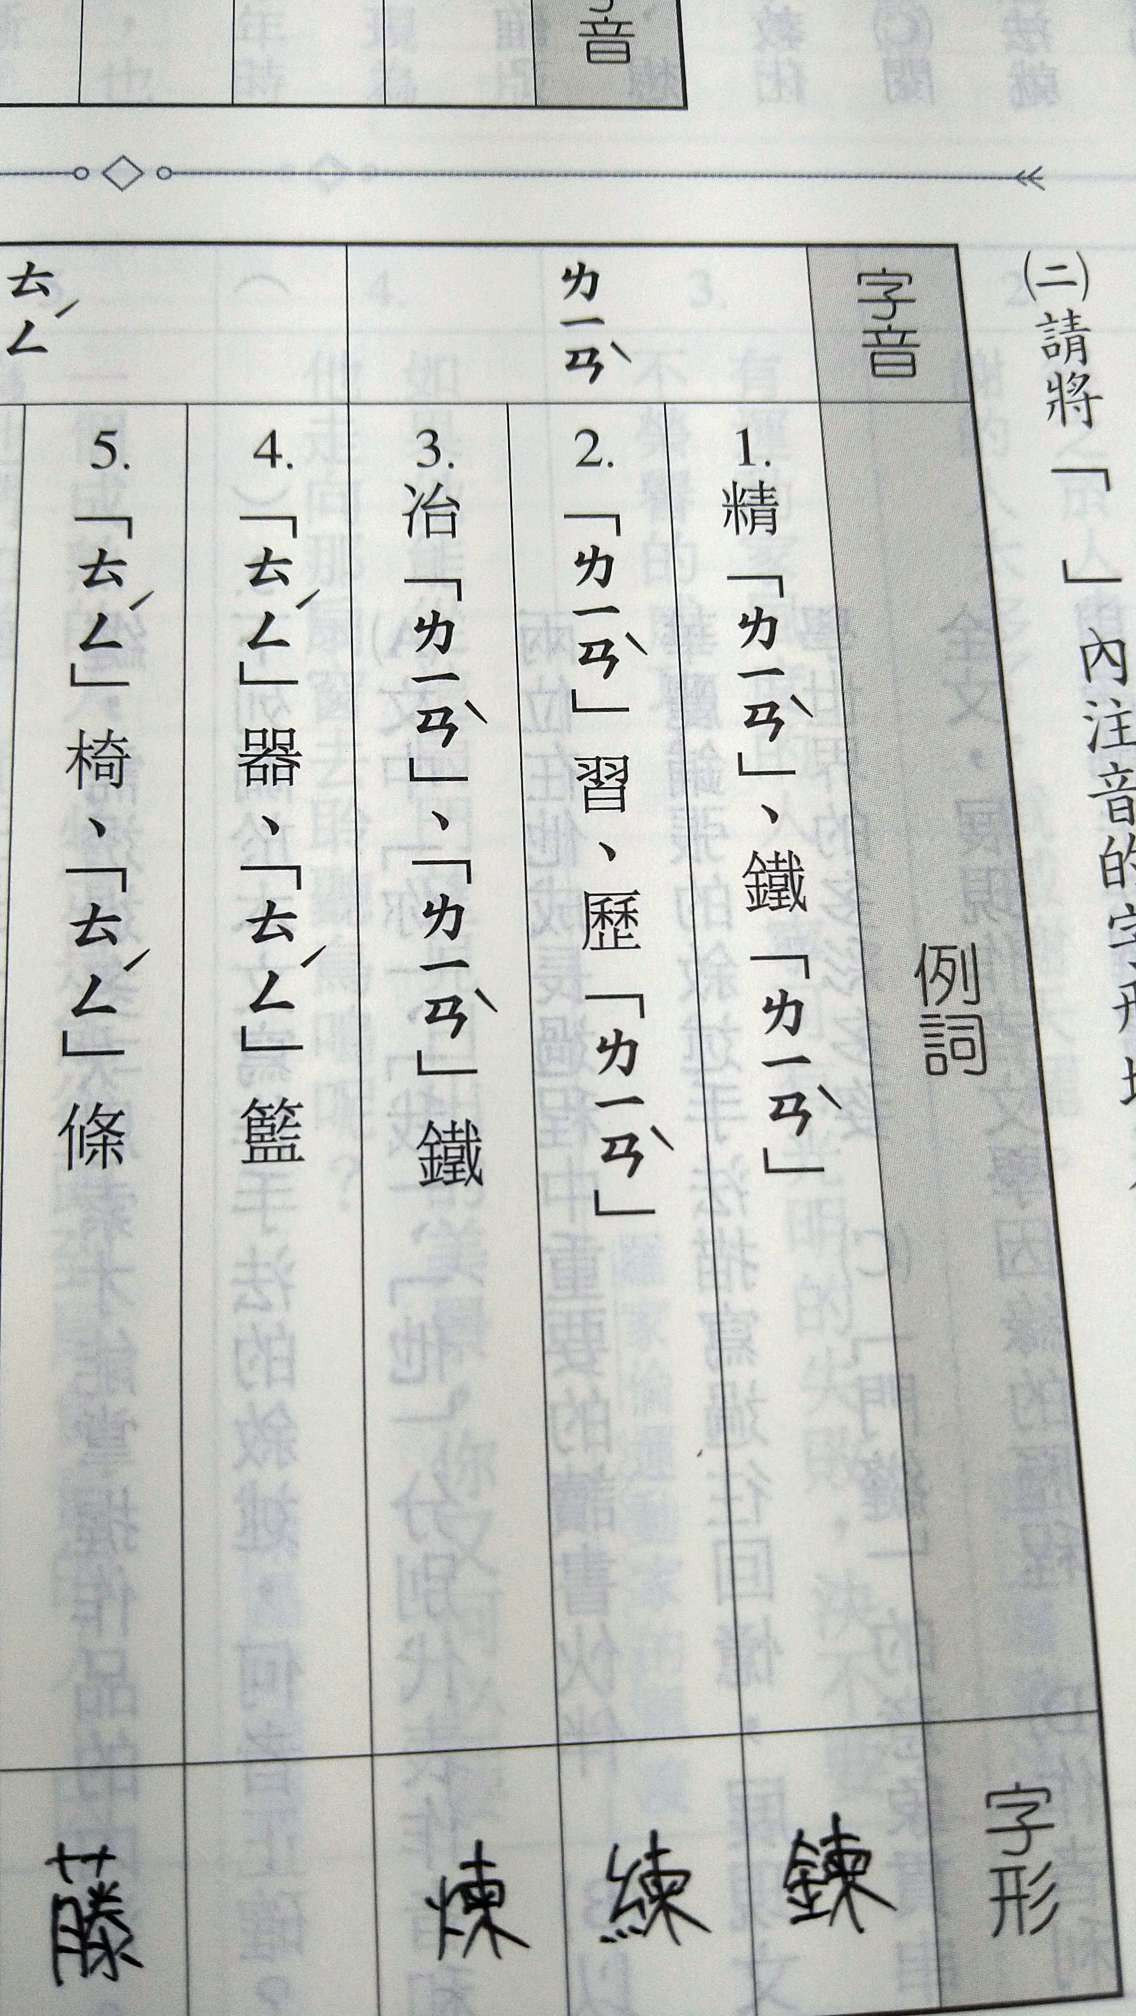 音
㈡請將「　」內注音的字形填入
字音
例詞
字形
ㄌㄧㄢˋ
1.精「ㄌㄧㄢˋ」、鐵「ㄌㄧㄢˋ」
鍊
2.「ㄌㄧㄢˋ」習、歷「ㄌㄧㄢˋ」
練
3.冶「ㄌㄧㄢˋ」、「ㄌㄧㄢˋ」鐵
煉
ㄊㄥˊ
4.「ㄊㄥˊ」器、「ㄊㄥˊ」籃
5.「ㄊㄥˊ」椅、「ㄊㄥˊ」條
藤